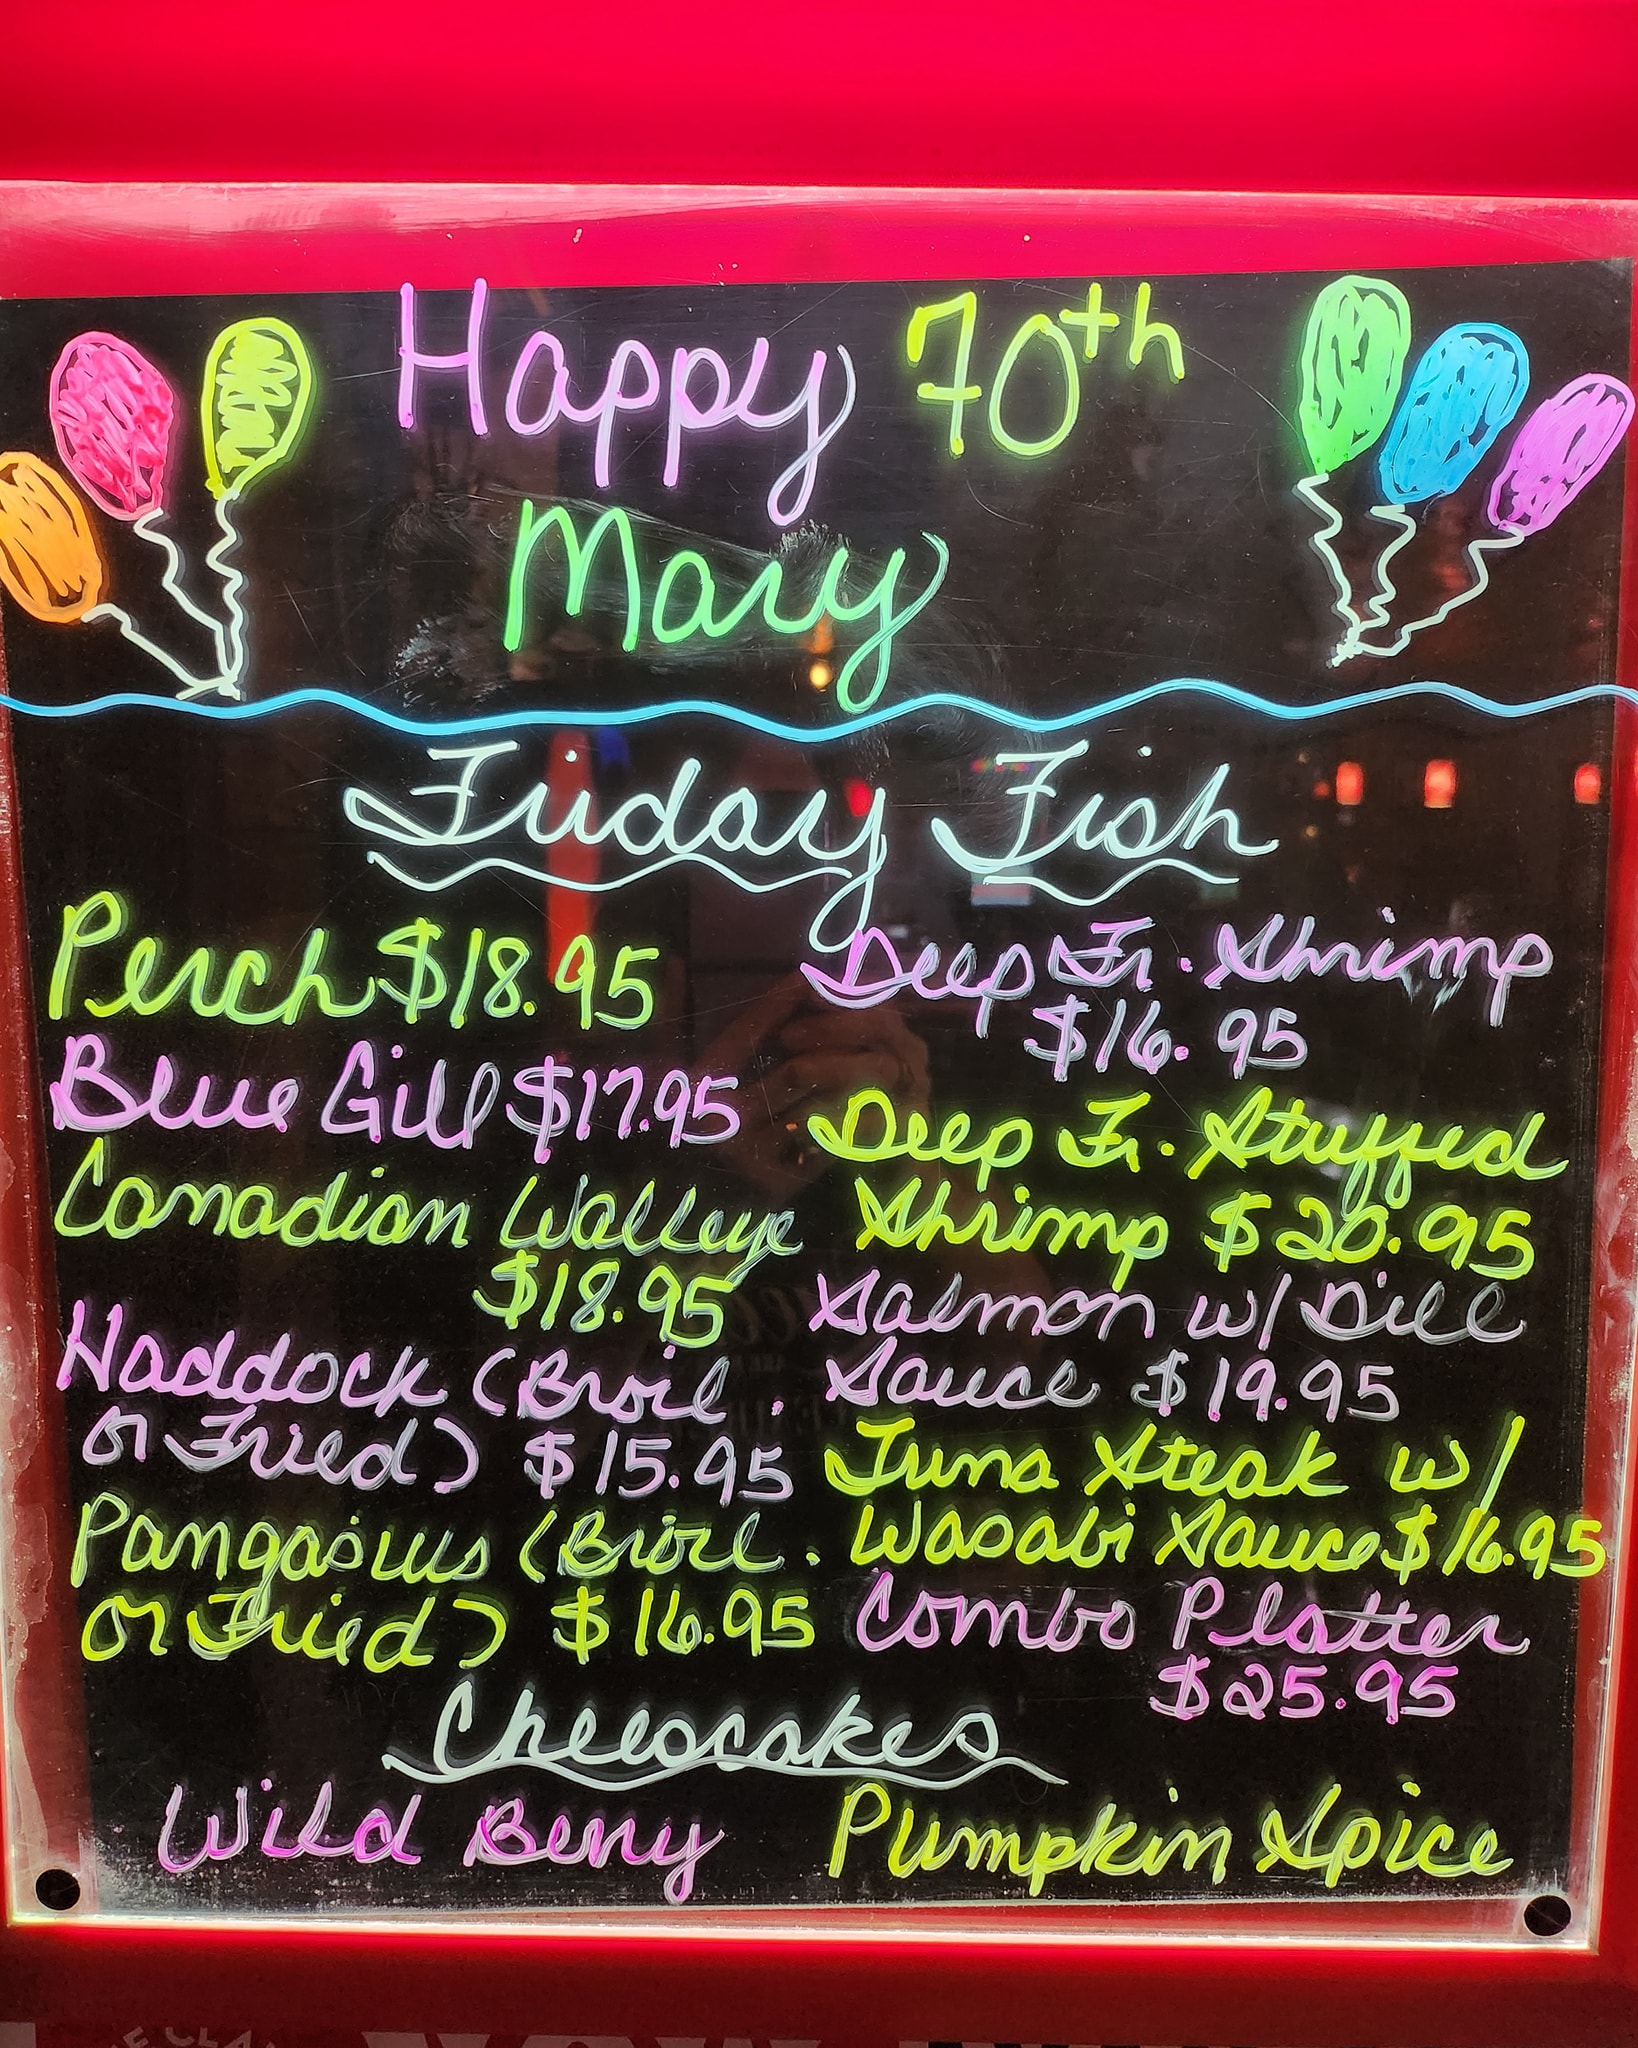 Happy 70th
Mary
Friday Fish
Perch $18.95
Blue Gill $17.95
Canadian Walleye
$18.95
Haddock (Broil.
or Fried) $15.95
Pangasius (Broil.
or Fried) $16.95
Deep Fr. Shrimp
$16.95
Deep Fr. Stuffed
Shrimp $20.95
Salmon w/ Dill
Sauce $19.95
Tuna Steak w/
Wasabi Sauce $16.95
Combo Platter
$25.95
Cheesecakes
Wild Berry
Pumpkin Spice